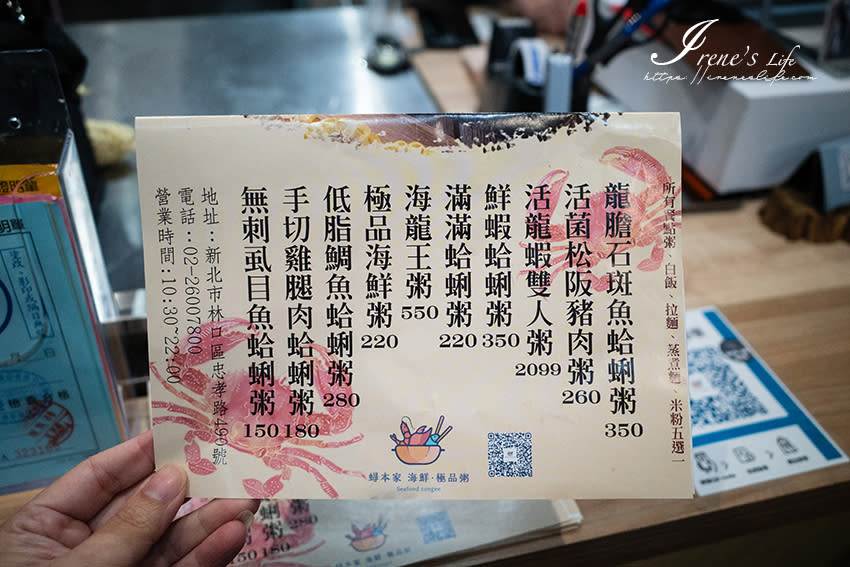 Irene's Life
https://ireneslife.com
所有餐點粥、白飯、拉麵、蒸煮麵、米粉五選一
龍膽石斑魚蛤蜊粥350
活菌松阪豬肉粥260
活龍蝦雙人粥2099
鮮蝦蛤蜊粥350
滿滿蛤蜊粥220
海龍王粥550
極品海鮮粥220
低脂鯛魚蛤蜊粥280
手切雞腿肉蛤蜊粥180
無刺虱目魚蛤蜊粥150
地址:新北市林口區忠孝路499號
電話:02-26007800
營業時間:10:30~22:00
蟳本家 海鮮·極品粥
Seafood congee
280
180
150